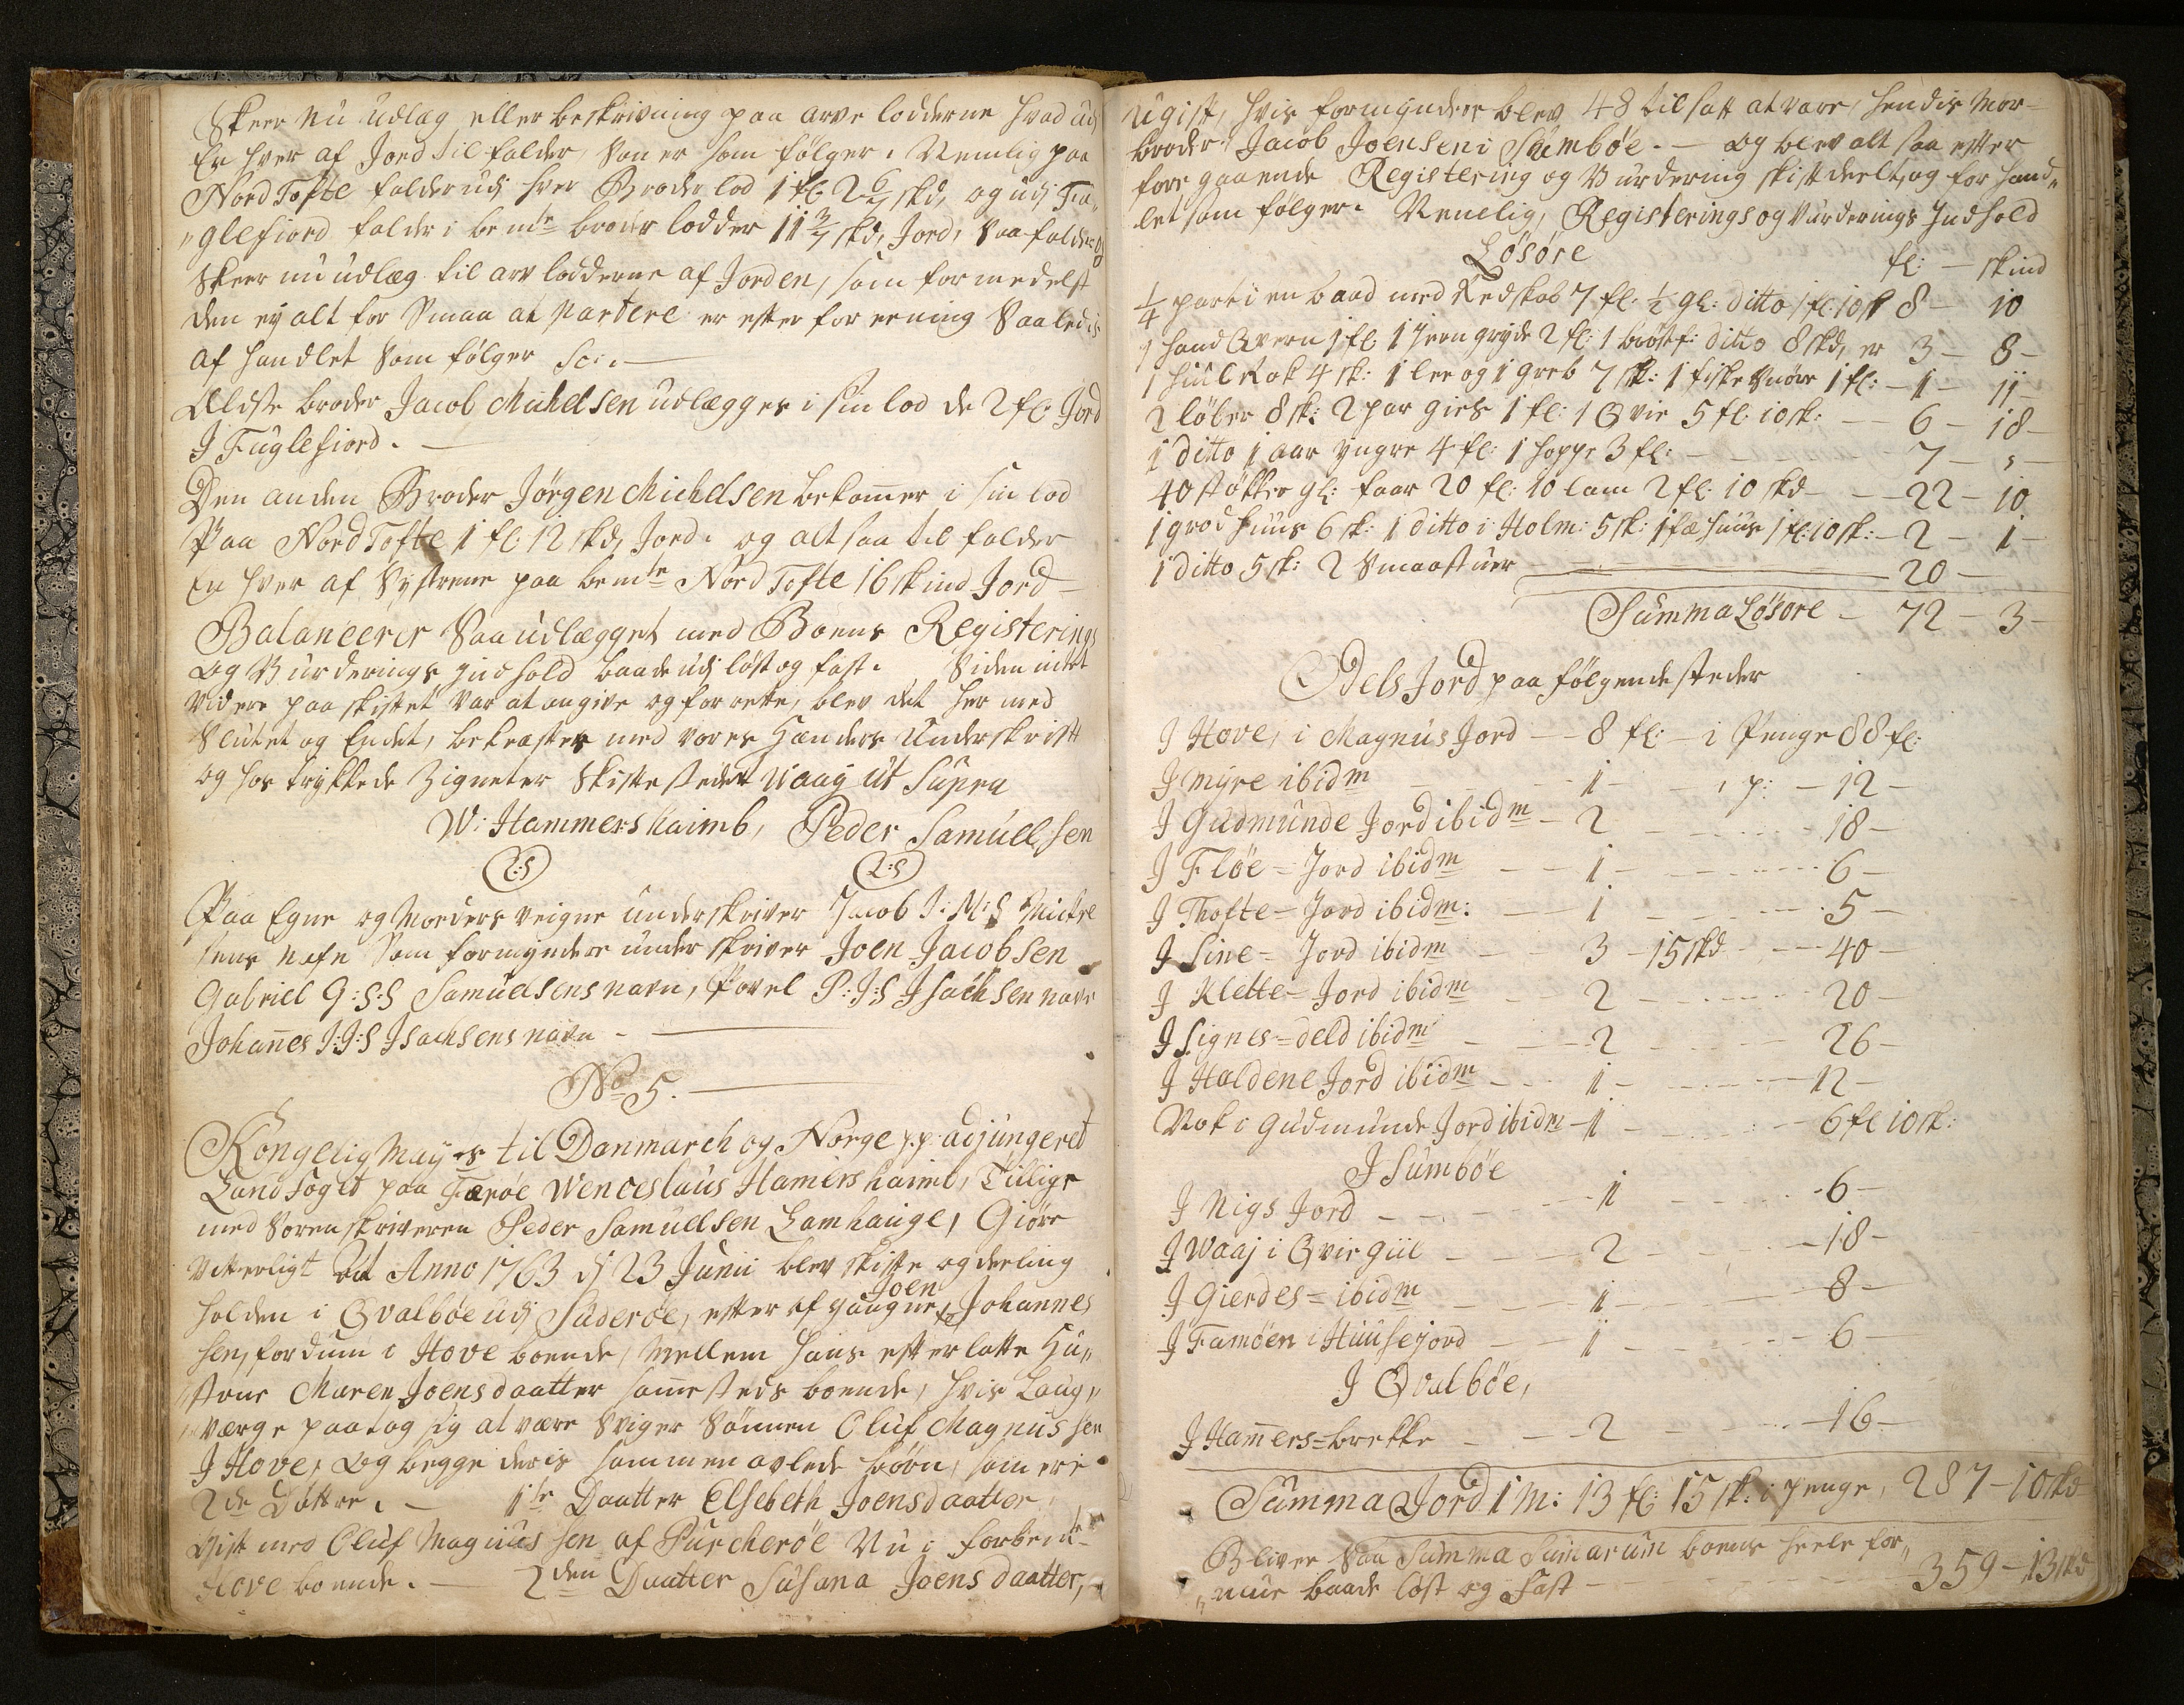 Skeer nu udlæg eller beskrivning paa arve lodderne hvad udj
En hver af Jord tilfalder, som er som følger. Nemlig paa
Nord Tofte falder udj hver Broder lod 1 fl: 2 6/7 skd, og udj Fu„
„glefiord falder i bemte broder lodder 11 3/7 skd, Jord, Saa falder og
skeer nu udlæg til arv lodderne af Jorden, som formedelst
den ey alt for Smaa at partere er efter foreening Saaledis
afhandlet Som følger Sc:.
Ældste broder Jacob Michelsen udlægges i sin lod de 2 fl: Jord
J Fuglefiord.
Den anden Broder Jørgen Michelsen bekomer i sin lod
Paa Nord Tofte 1 fl: 12 skd, Jord. og altsaa til falder
En hver af Systrene paa bemte Nord Tofte 16 skind Jord
Balanceerer Saa udlægget med Boens Registerings
og Vurderings Jndhold baade udj løst og fast. Siden intet
videre paa skiftet var at angive og forrette, blev det her med
Slutet og Endet, bekræftes med vores Hænders Underskrift
og hos trykkede Zigneter Skiftestedet Waag ut Supra
W: Hammershaimb, Peder Samuelsen
L:S L:S
Paa Egne og Moders veigne underskriver Jacob J:M:S Michel
sens nafn Som formynder under skriver Joen Jacobsen
Gabriel G:S:S Samuelsens navn, Povel P:J:S Jsachsen navn
Johanes J:J:S Jsachsens navn
No 5.
Kongelig Mayts til Danmarch og Norge p.p. adjungeret
Landfoget paa Færøe Wenceslaus Hamershaimb, Tillige
med Sorenskriveren Peder Samuelsen Lamhauge, Giøre
Vitterligt At Anno 1763 dj 23 Junii blev skifte og deeling
holden i Qvalbøe udj Suderøe, efter afgangne Joen Johannes
sen, fordum i Hove boende, Mellem hans efterlatte Hu„
„strue Maren Joensdaatter samesteds boende, hvis Laug„
„værge paatog sig at være Sviger Sønnen Oluf Magnussen
J Hove, og begge deris sammen avlede børn, som ere
2de Døttre. 1te Daatter Elsebeth Joensdaatter
Gift med Oluf Magnussen af Purcherøe Nu i forbemte
Hove boende. 2den Daatter Susana Joensdaatter,
Ugift, hvis formynder blev tilsatt at være, hendis Mor-
broder Jacob Joensen i Sumbøe. og blev altsaa efter
foregaaende Registering og Vurdering skift deelt, og forhand„
let som følger. Nemelig, Registerings og Vurderings Jndhold
Løsøre fl: skind
1/4 part i en baad med Redskab 7 fl: 1/2 gl: ditto 1 fl: 10 sk 8 10
1 hand Qvern 1 fl: 1 Jerngryde 2 fl: 1 brøstf: ditto 8 skd, er 3 8
1 Hiul Rok 4 sk: 1 lee og 1 greb 7 sk: 1 fiske Snøre 1 fl: 1 11
2 løber 8 sk: 2 par giels 1 fl: 1 Qvie 5 fl: 10 sk: 6 18
1 ditto 1 aar yngre 4 fl: 1 hoppe 3 fl: 7 „
40 støkker gl: faar 20 fl: 10 lam 2 fl: 10 skd 22 10
1 grodhuus 6 sk: 1 ditto i Holm: 5 sk: 1 fæhuus 1 fl: 10 sk: 2 1
1 ditto 5 sk: 2 Smaastuer 20
Summa Løsøre 72 3
Odels Jord paa følgende steder
J Hove, i Magnus Jord 8 fl: i Penge 88 fl:
J Myre ibidm 1 p: 12
J Gudmunde Jord ibidm 2 18
J Fløe=Jord ibidm 1 6
J Thofte=Jord ibidm: 1 5
J Sine=Jord ibidm 3 15 skd 40
J Klette=Jord ibidm 2 20
J Signes=deld ibidm 2 26
J Haldene Jord ibidm 1 12
Nok i Gudmunde Jord ibidm 1 6 fl 10 sk:
J Sumbøe
J Nigs Jord 1 6
J Waaj i Qviegiil 2 18
J Gierdes=ibidm 1 8
J Famøen i Huusejord 1 6
J Qvalbøe,
J Hamers=brekke 2 16
Summa Jord 1 M: 13 fl: 15 sk: i penge, 287 10 skd
Bliver Saa Summa Sumarum boens heele for„
„mue baade Løst og Fast 359 13 skd